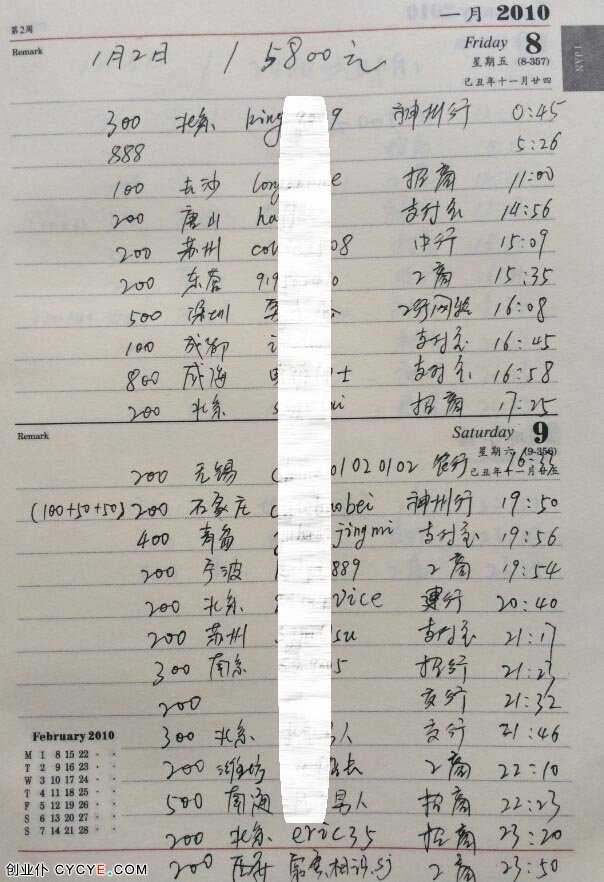 第2周
一月 2010
Remark
Friday 8
星期五 (8-357)
己丑年十一月廿四
1 JAN
1月2日 15800元
300 北京 king 9 神州行 0:45
888 5:26
100 长沙 long e 招商 11:00
200 唐山 ha 支付宝 14:56
200 苏州 co 08 中行 15:09
200 东营 919 0 工商 15:35
500 深圳 16:08
100 成都 支付宝 16:45
800 威海 士 支付宝 16:58
200 北京 s i 招商 17:25
Remark
Saturday 9
星期六 (9-356)
己丑年十一月廿五
200 无锡 c 01020102 农行
(100+50+50) 200 石家庄 c bei 神州行 19:50
400 青岛 jingmi 支付宝 19:56
200 宁波 889 工商 19:54
200 北京 vice 建行 20:40
200 苏州 su 支付宝 21:17
300 南京 5 招行 21:23
200 交行 21:32
300 北京 人 交行 21:46
200 潍坊 长 工商 22:10
500 南通 男人 招商 22:23
200 北京 eric35 招商 23:20
200 工商 23:50
February 2010
M 1 8 15 22
T 2 9 16 23
W 3 10 17 24
T 4 11 18 25
F 5 12 19 26
S 6 13 20 27
S 7 14 21 28
创业仆 CYCYE.COM